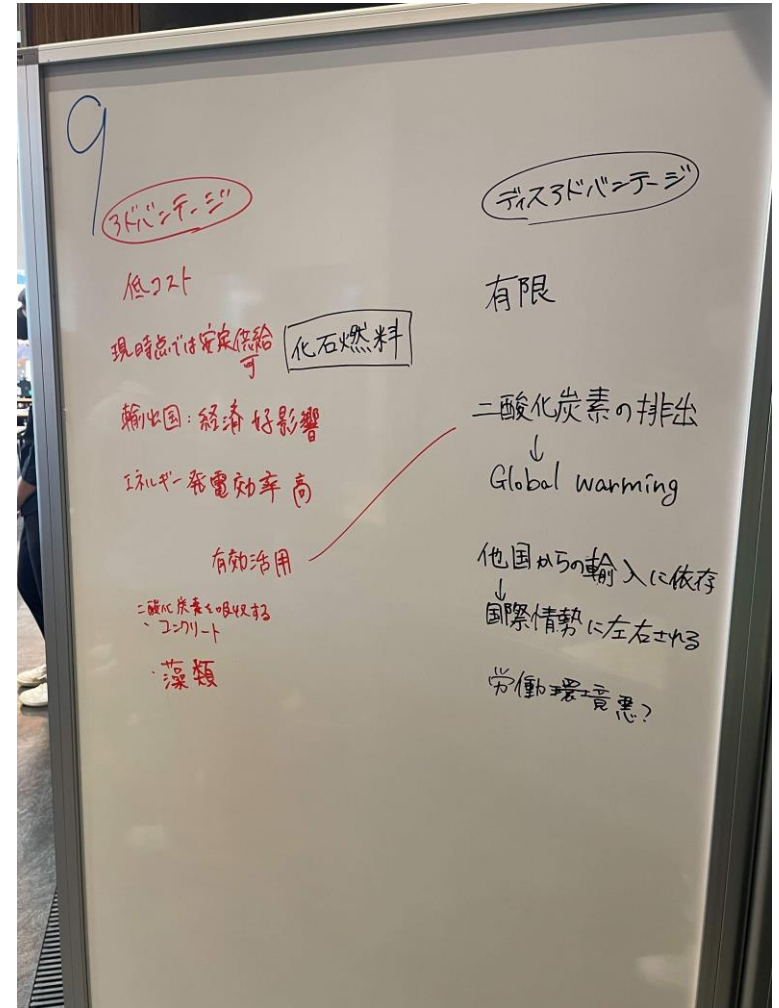 9
アドバンテージ
低コスト
現時点では安定供給
可
化石燃料
輸出国:経済好影響
エネルギー発電効率高
有効活用
二酸化炭素を吸収する
・コンクリート
・藻類
ディスアドバンテージ
有限
二酸化炭素の排出
↓
Global warming
他国からの輸入に依存
↓
国際情勢に左右される
労働環境悪?